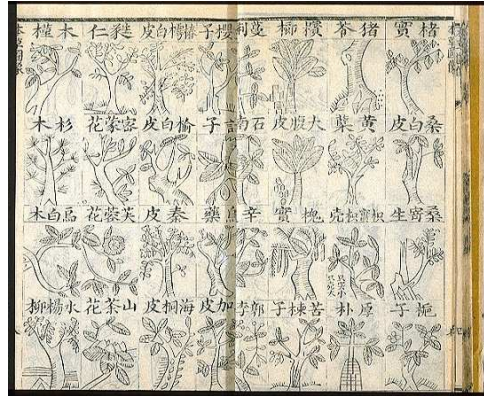 楮實 猪苓 檳榔 蔓荊 椿樗白皮 蕤仁 木槿
桑白皮 黃蘗 大腹皮 石南 訶子 榆白皮 密蒙花 杉木
桑寄生 枳實枳壳 槐實 辛 烏藥 秦皮 芙蓉花 烏白木
梔子 厚朴 苦楝子 加皮 海桐皮 山茶花 水楊柳